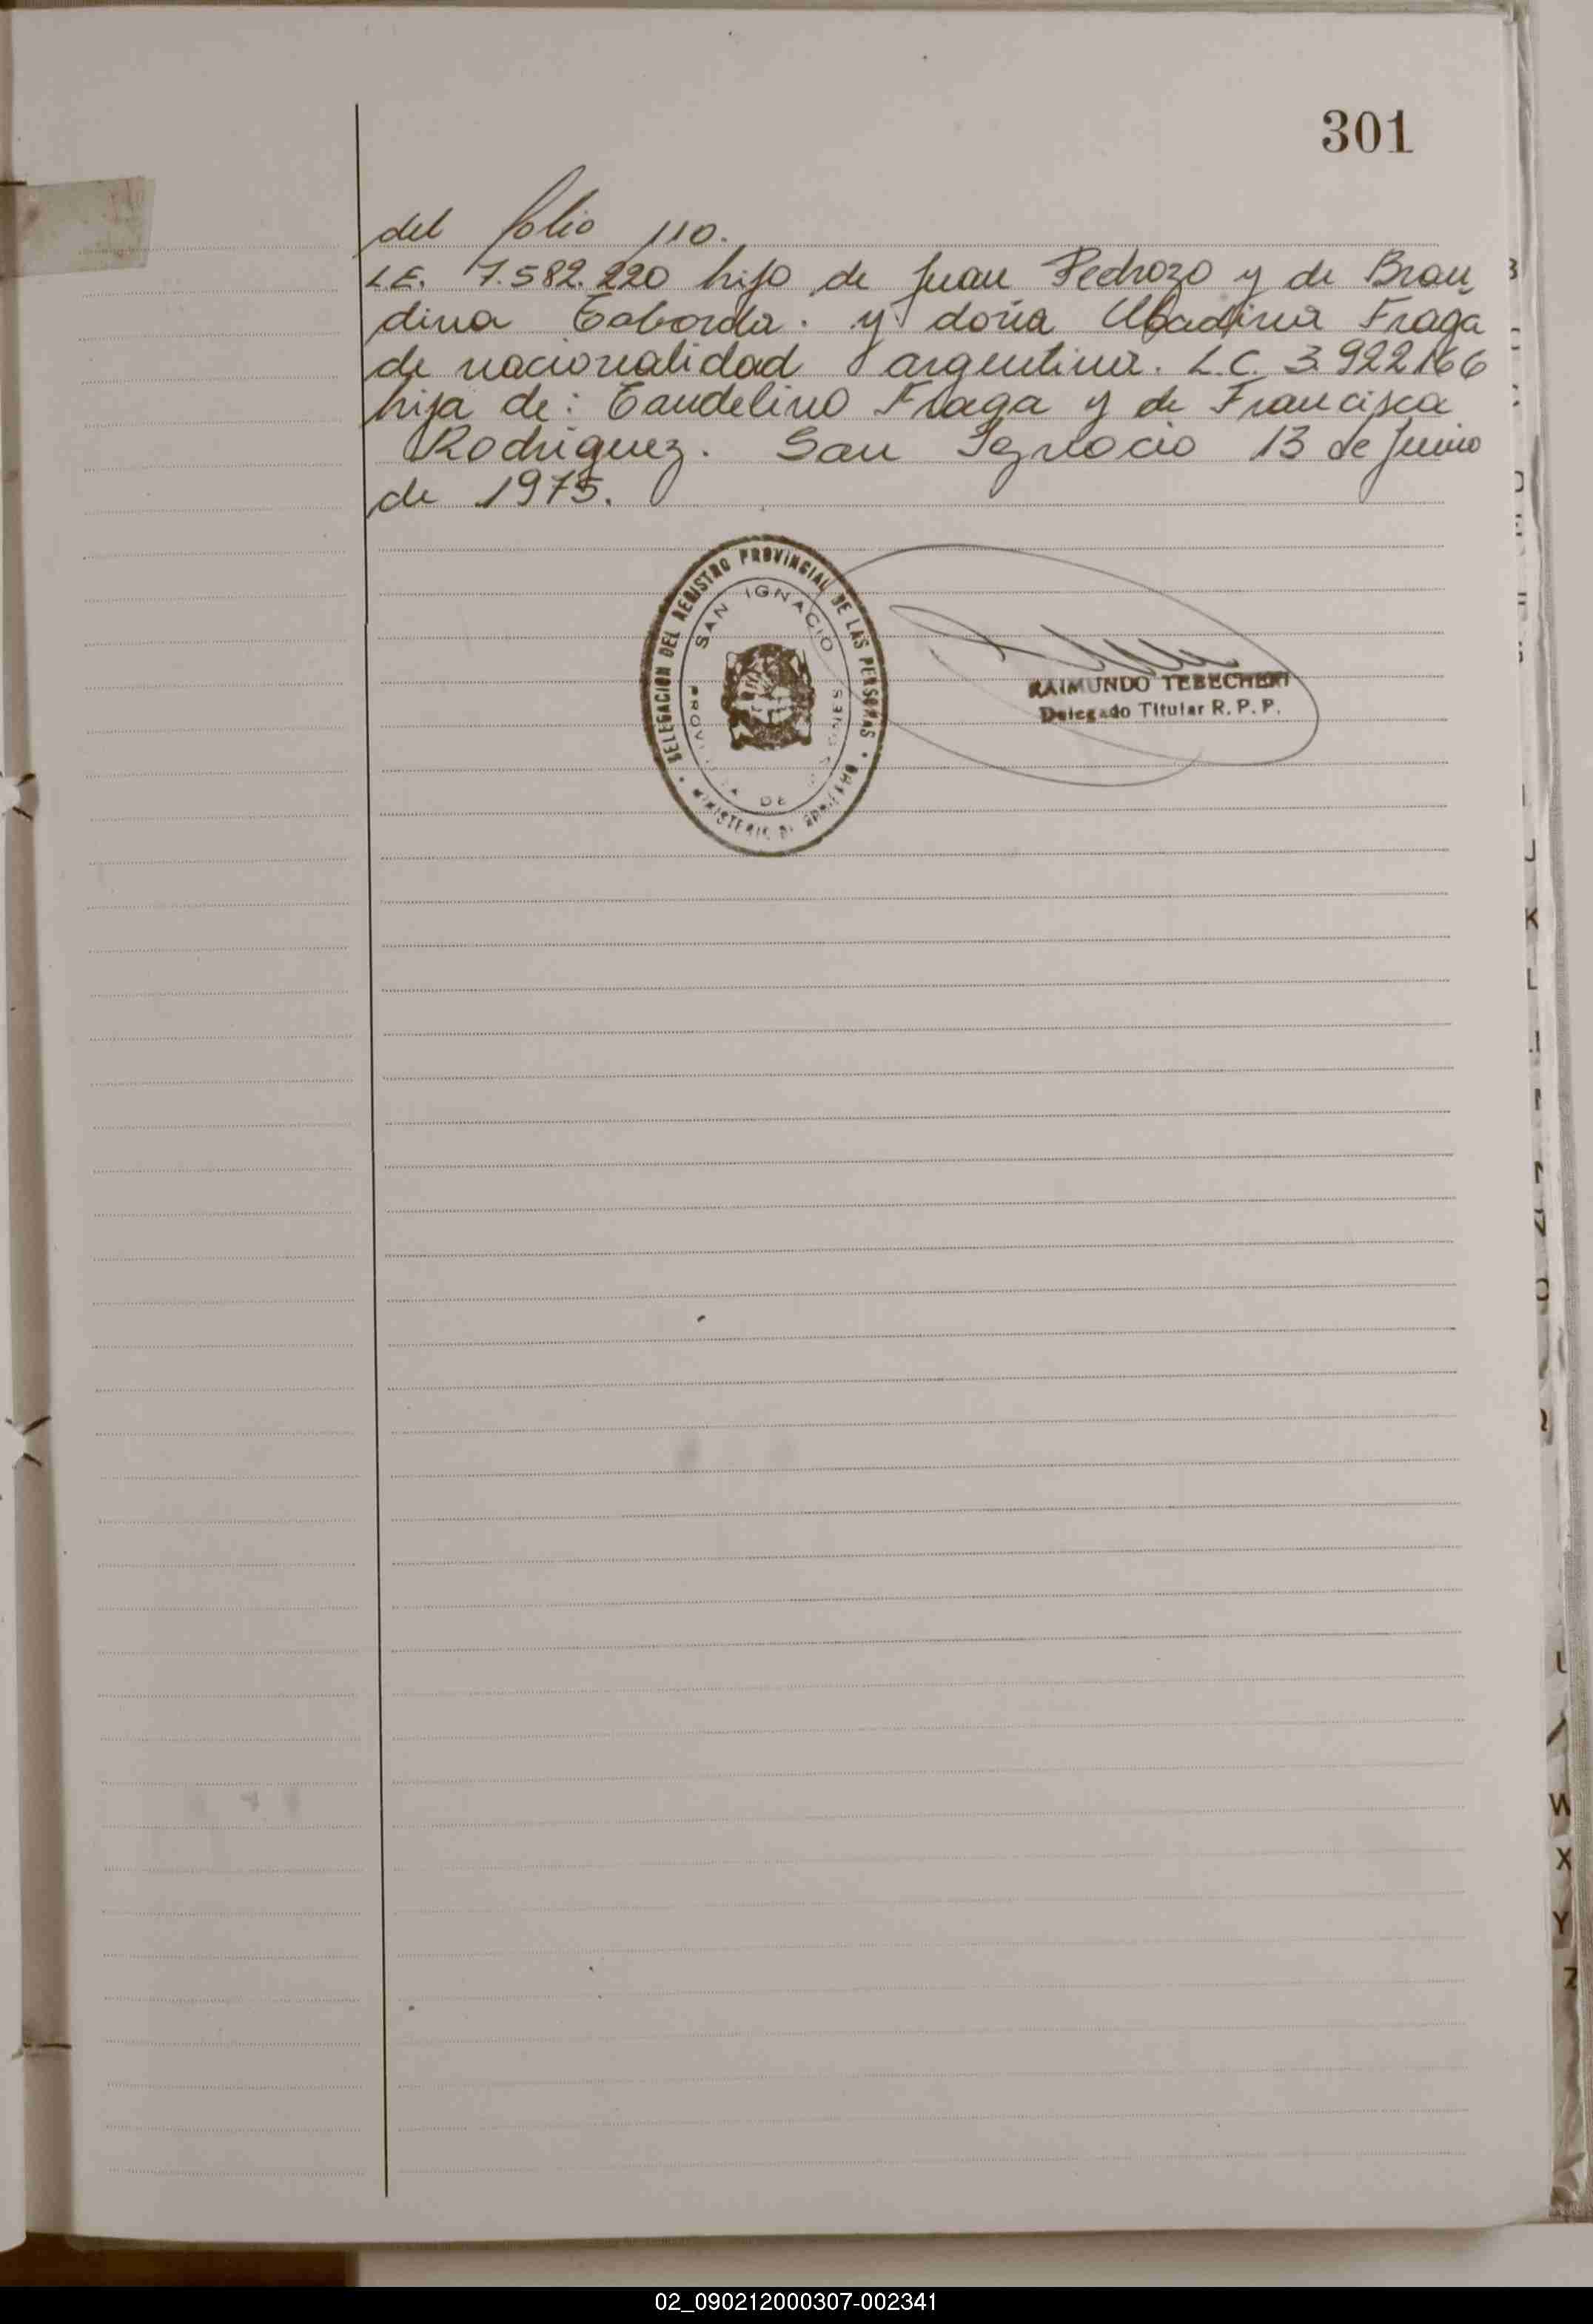 301
del folio 110.
L.E. 7.582.220 hijo de Juan Pedrozo y de Bran
dina Taborda. y doña Abadina Fraga
de nacionalidad argentina. L.C. 3.922.166
hija de: Candelino Fraga y de Francisca
Rodriguez. San Ignacio 13 de Junio
de 1975.
DELEGACION DEL REGISTRO PROVINCIAL DE LAS PERSONAS
SAN IGNACIO
MINISTERIO DE GOBIERNO
RAIMUNDO TEBECHERI
Delegado Titular R. P. P.
J
K
L
W
X
Y
Z
02_090212000307-002341